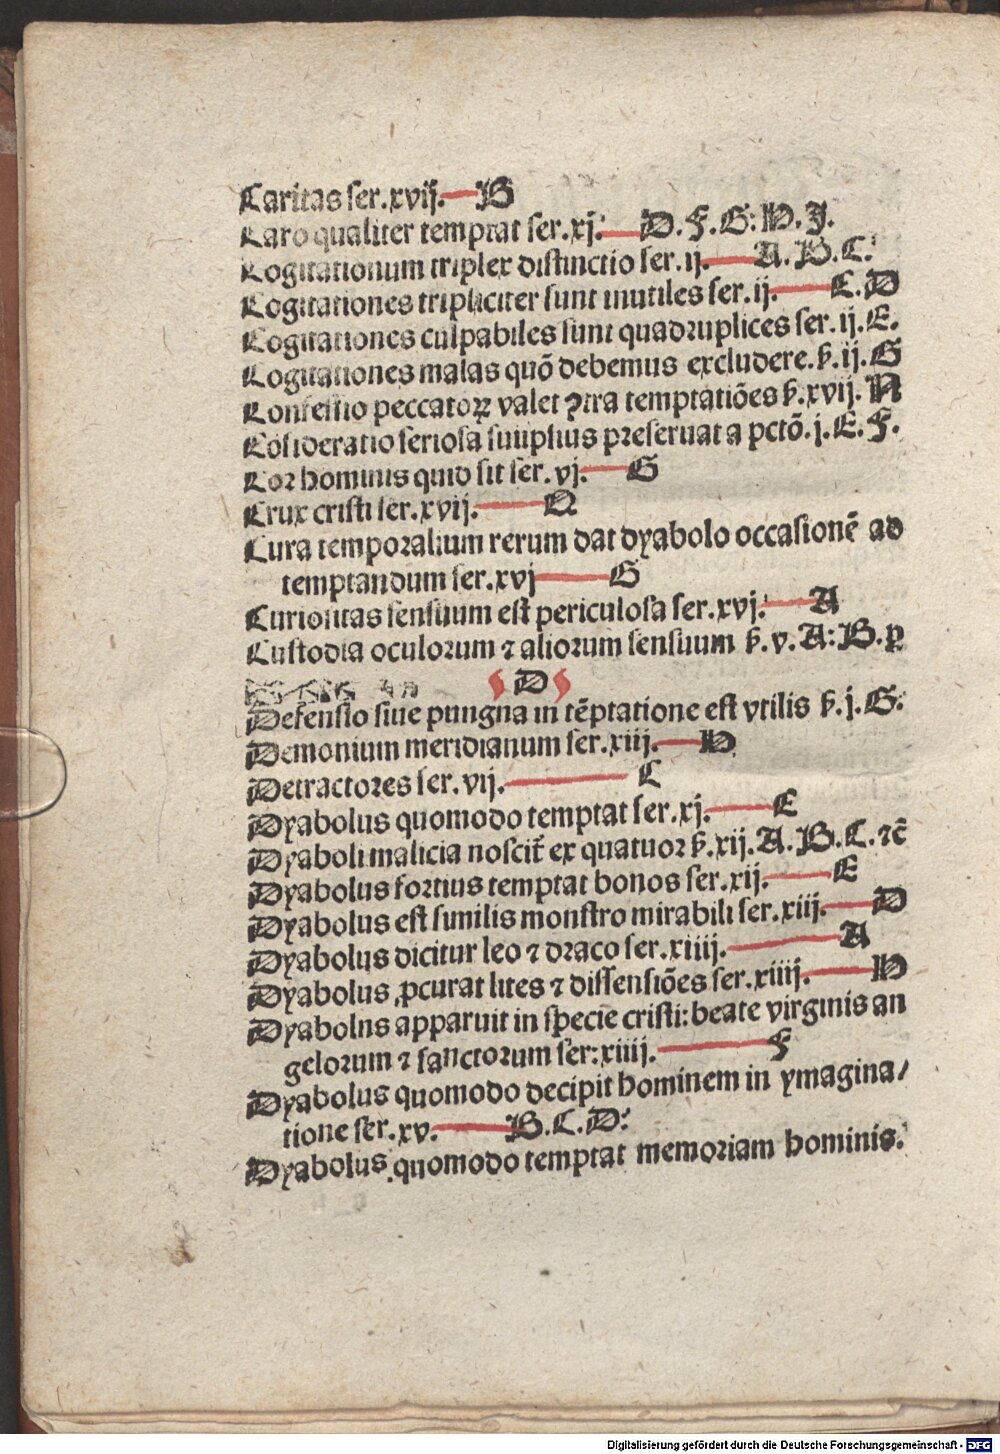 Caritas ser.xvij. B
Caro qualiter temptat ser.xj. D.F.G:H.J.
Cogitationum triplex distinctio ser.ij. A.B.C.
Cogitationes tripliciter sunt inutiles ser.ij. C.D
Cogitationes culpabiles sunt quadruplices ser.ij.E.
Cogitationes malas quō debemus excludere.ẜ.ij.G
Confessio peccatoꝝ valet ꝯtra temptatiōes ẜ.xvij.N
Cōsideratio seriosa suiipsius preseruat a pctō.j.E.F.
Cor hominis quid sit ser.vj. G
Crux cristi ser.xvij. Q
Cura temporalium rerum dat dyabolo occasionē ad
temptandum ser.xvj G
Curiositas sensuum est periculosa ser.xvj. A
Custodia oculorum ⁊ aliorum sensuum ẜ.v.A:B.ꝑ
D
Defensio siue pungna in tēptatione est vtilis ẜ.j.G.
Demonium meridianum ser.xiij. H
Detractores ser.vij. C
Dyabolus quomodo temptat ser.xj. E
Dyaboli malicia noscit̄ ex quatuor ẜ.xij.A.B.C.⁊c̄
Dyabolus fortius temptat bonos ser.xij. E
Dyabolus est similis monstro mirabili ser.xiij. D
Dyabolus dicitur leo ⁊ draco ser.xiiij. A
Dyabolus ꝓcurat lites ⁊ dissensiōes ser.xiiij. H
Dyabolns apparuit in specie cristi:beate virginis an
gelorum ⁊ sanctorum ser:xiiij. F
Dyabolus quomodo decipit hominem in ymagina/
tione ser.xv. B.C.D:
Dyabolus.quomodo temptat memoriam hominis.
Digitalisierung gefördert durch die Deutsche Forschungsgemeinschaft - DFG